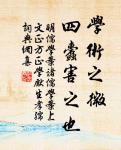 學術之微
四蠹害之也
明儒學案諸儒學案上
文正方正學獻生孝孺
詞典網集